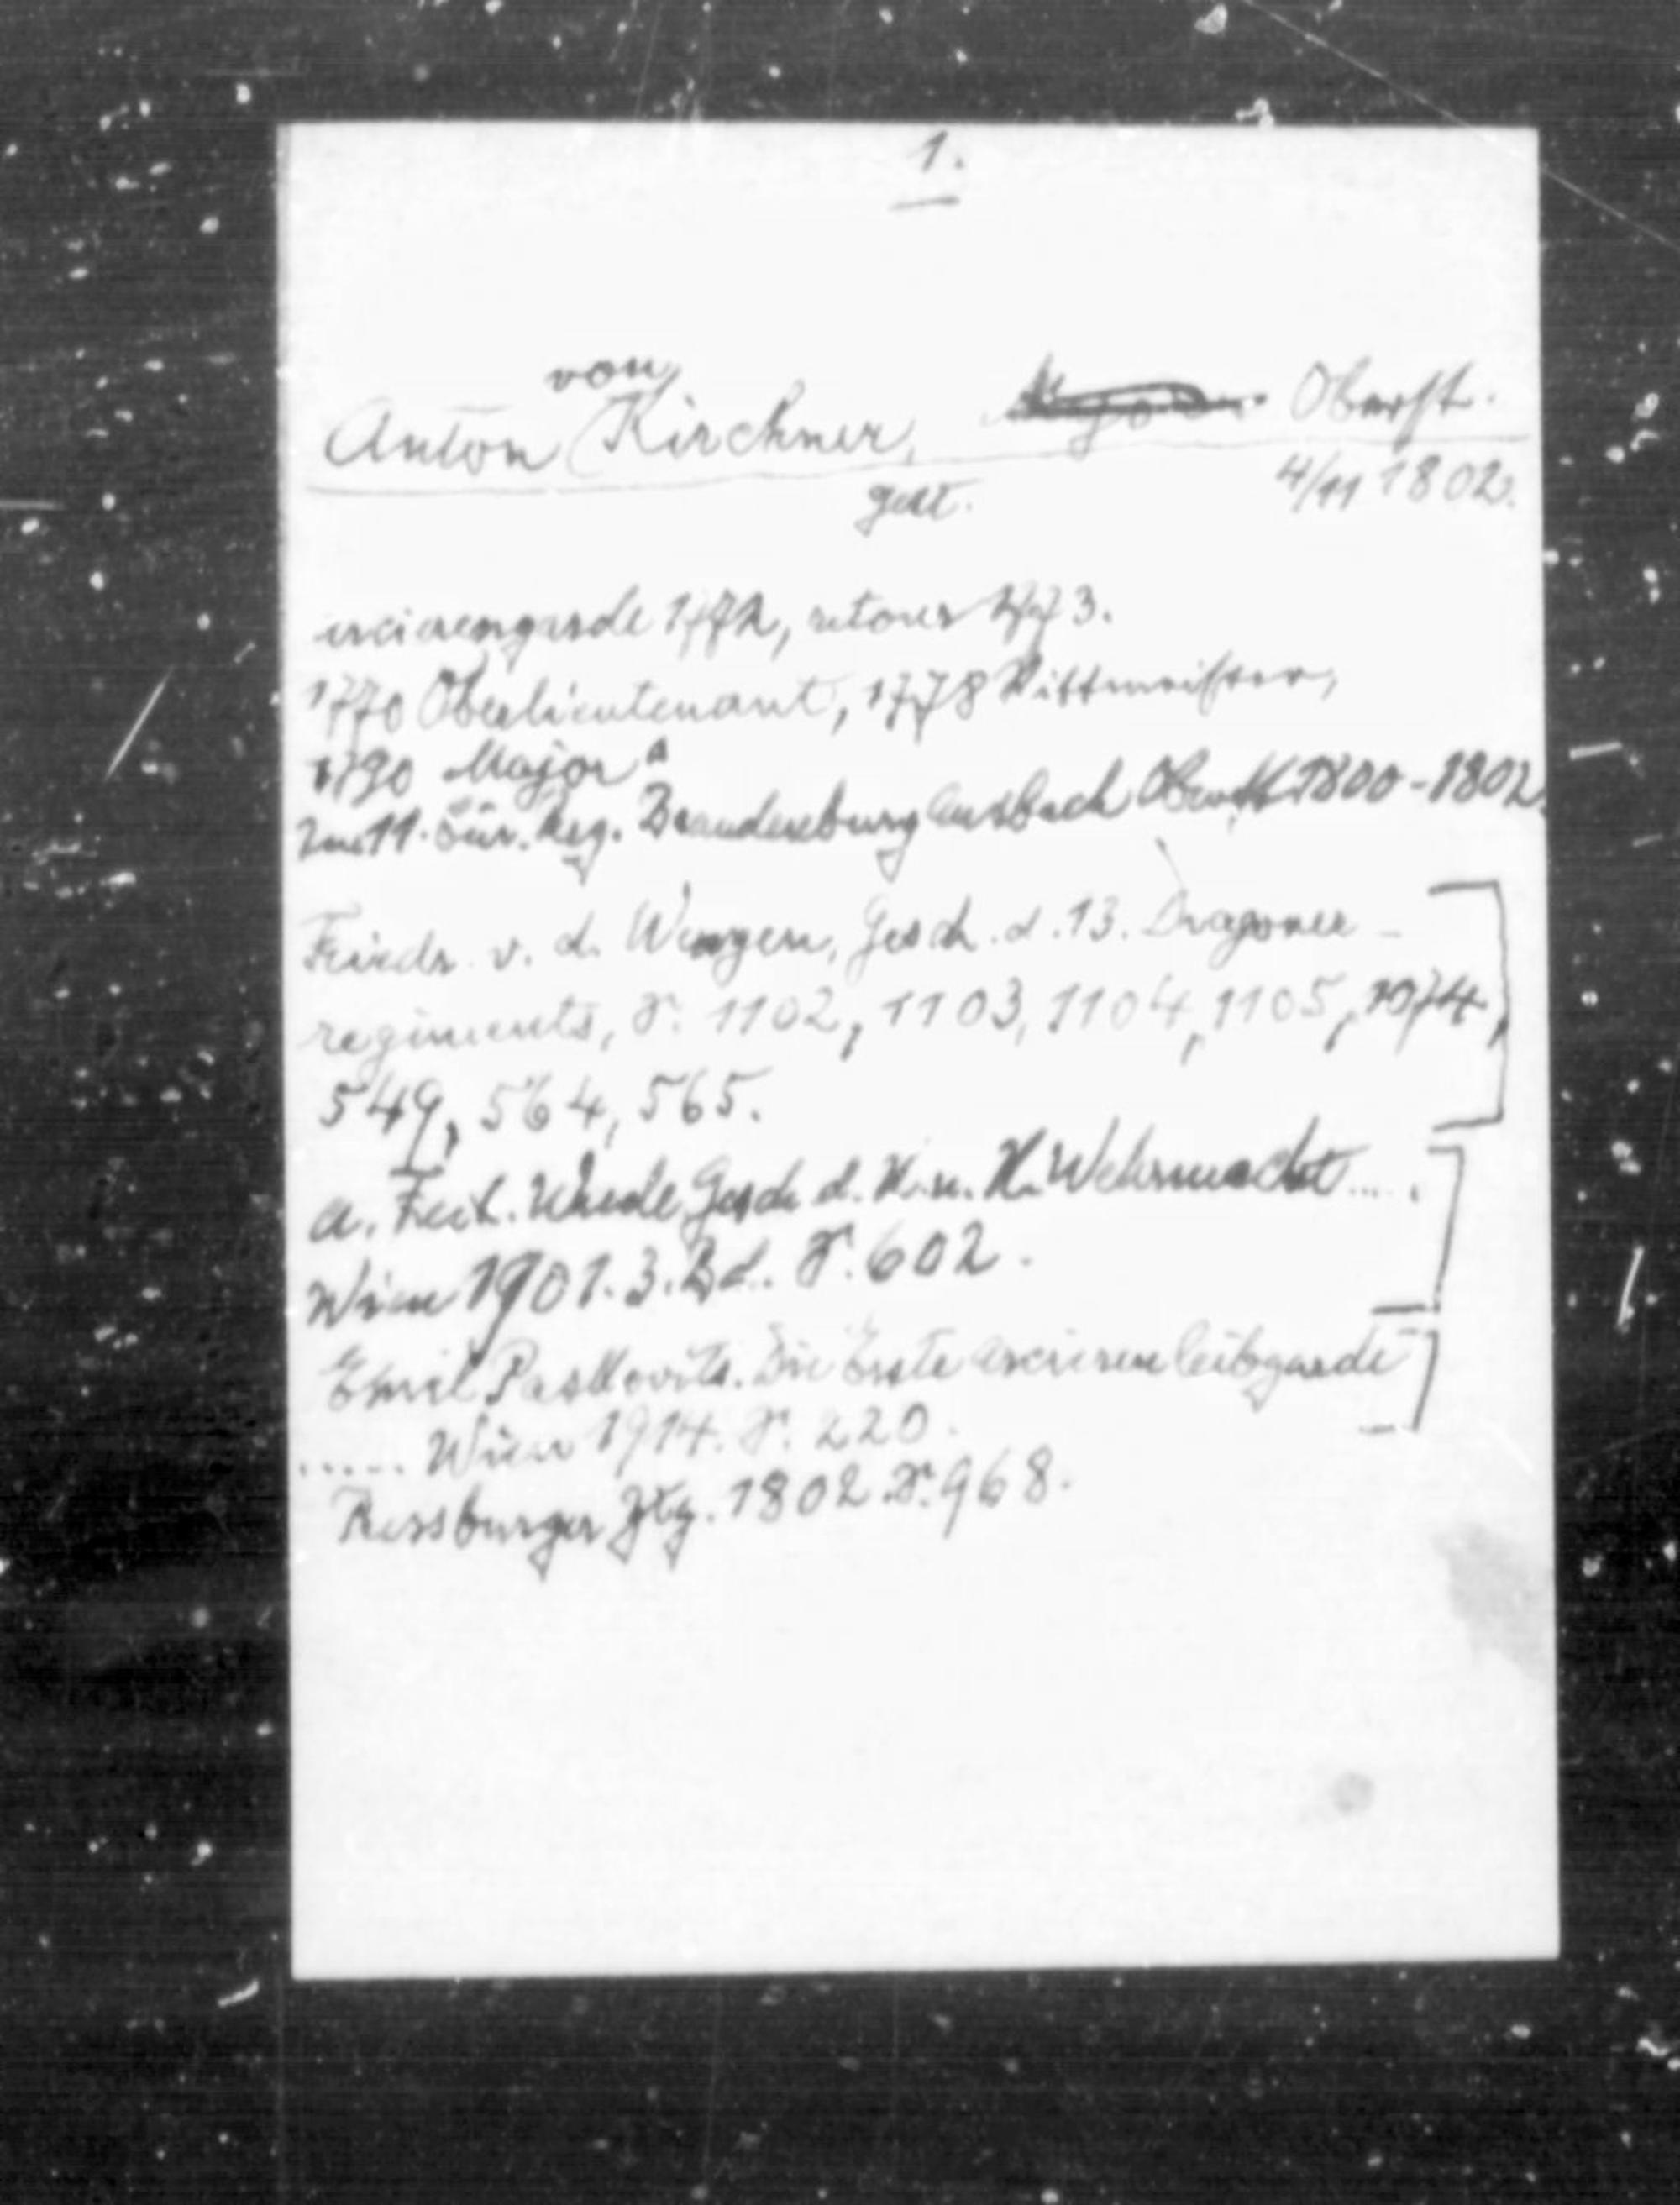 1.
von
Anton Kirchner, Major. Oberst.
gest. 4/11 1802.
Arcierengarde 1772, retour 1773.
1770 Oberlieutenant, 1778 Rittmeister,
1790 Major
Im 11. Cür. Reg. Brandenburg Ansbach Oberst 1800-1802.
Friedr. v. d. Wengen, Gesch. d. 13. Dragoner-
regiments, S. 1102, 1103, 1104, 1105, 1074,
549, 564, 565.
A. Freih. Wrede Gesch d. K. u. K. Wehrmacht ....
Wien 1901. 3. Bd. S. 602.
Emil Paskovits. Die Erste Arcierenleibgarde
..... Wien 1914. S. 220.
Pressburger Ztg. 1802. S. 968.